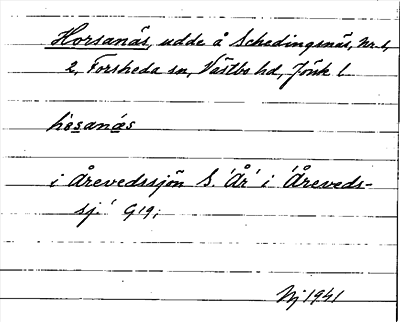 Horsanäs, udde å Schedingsnäs, Nr. 1,
2, Forsheda sn, Västbo hd, Jönk l
hèsanás
i Årevedssjön S. 'År' i 'Åreveds-
sj.' G19;
Nj 1941